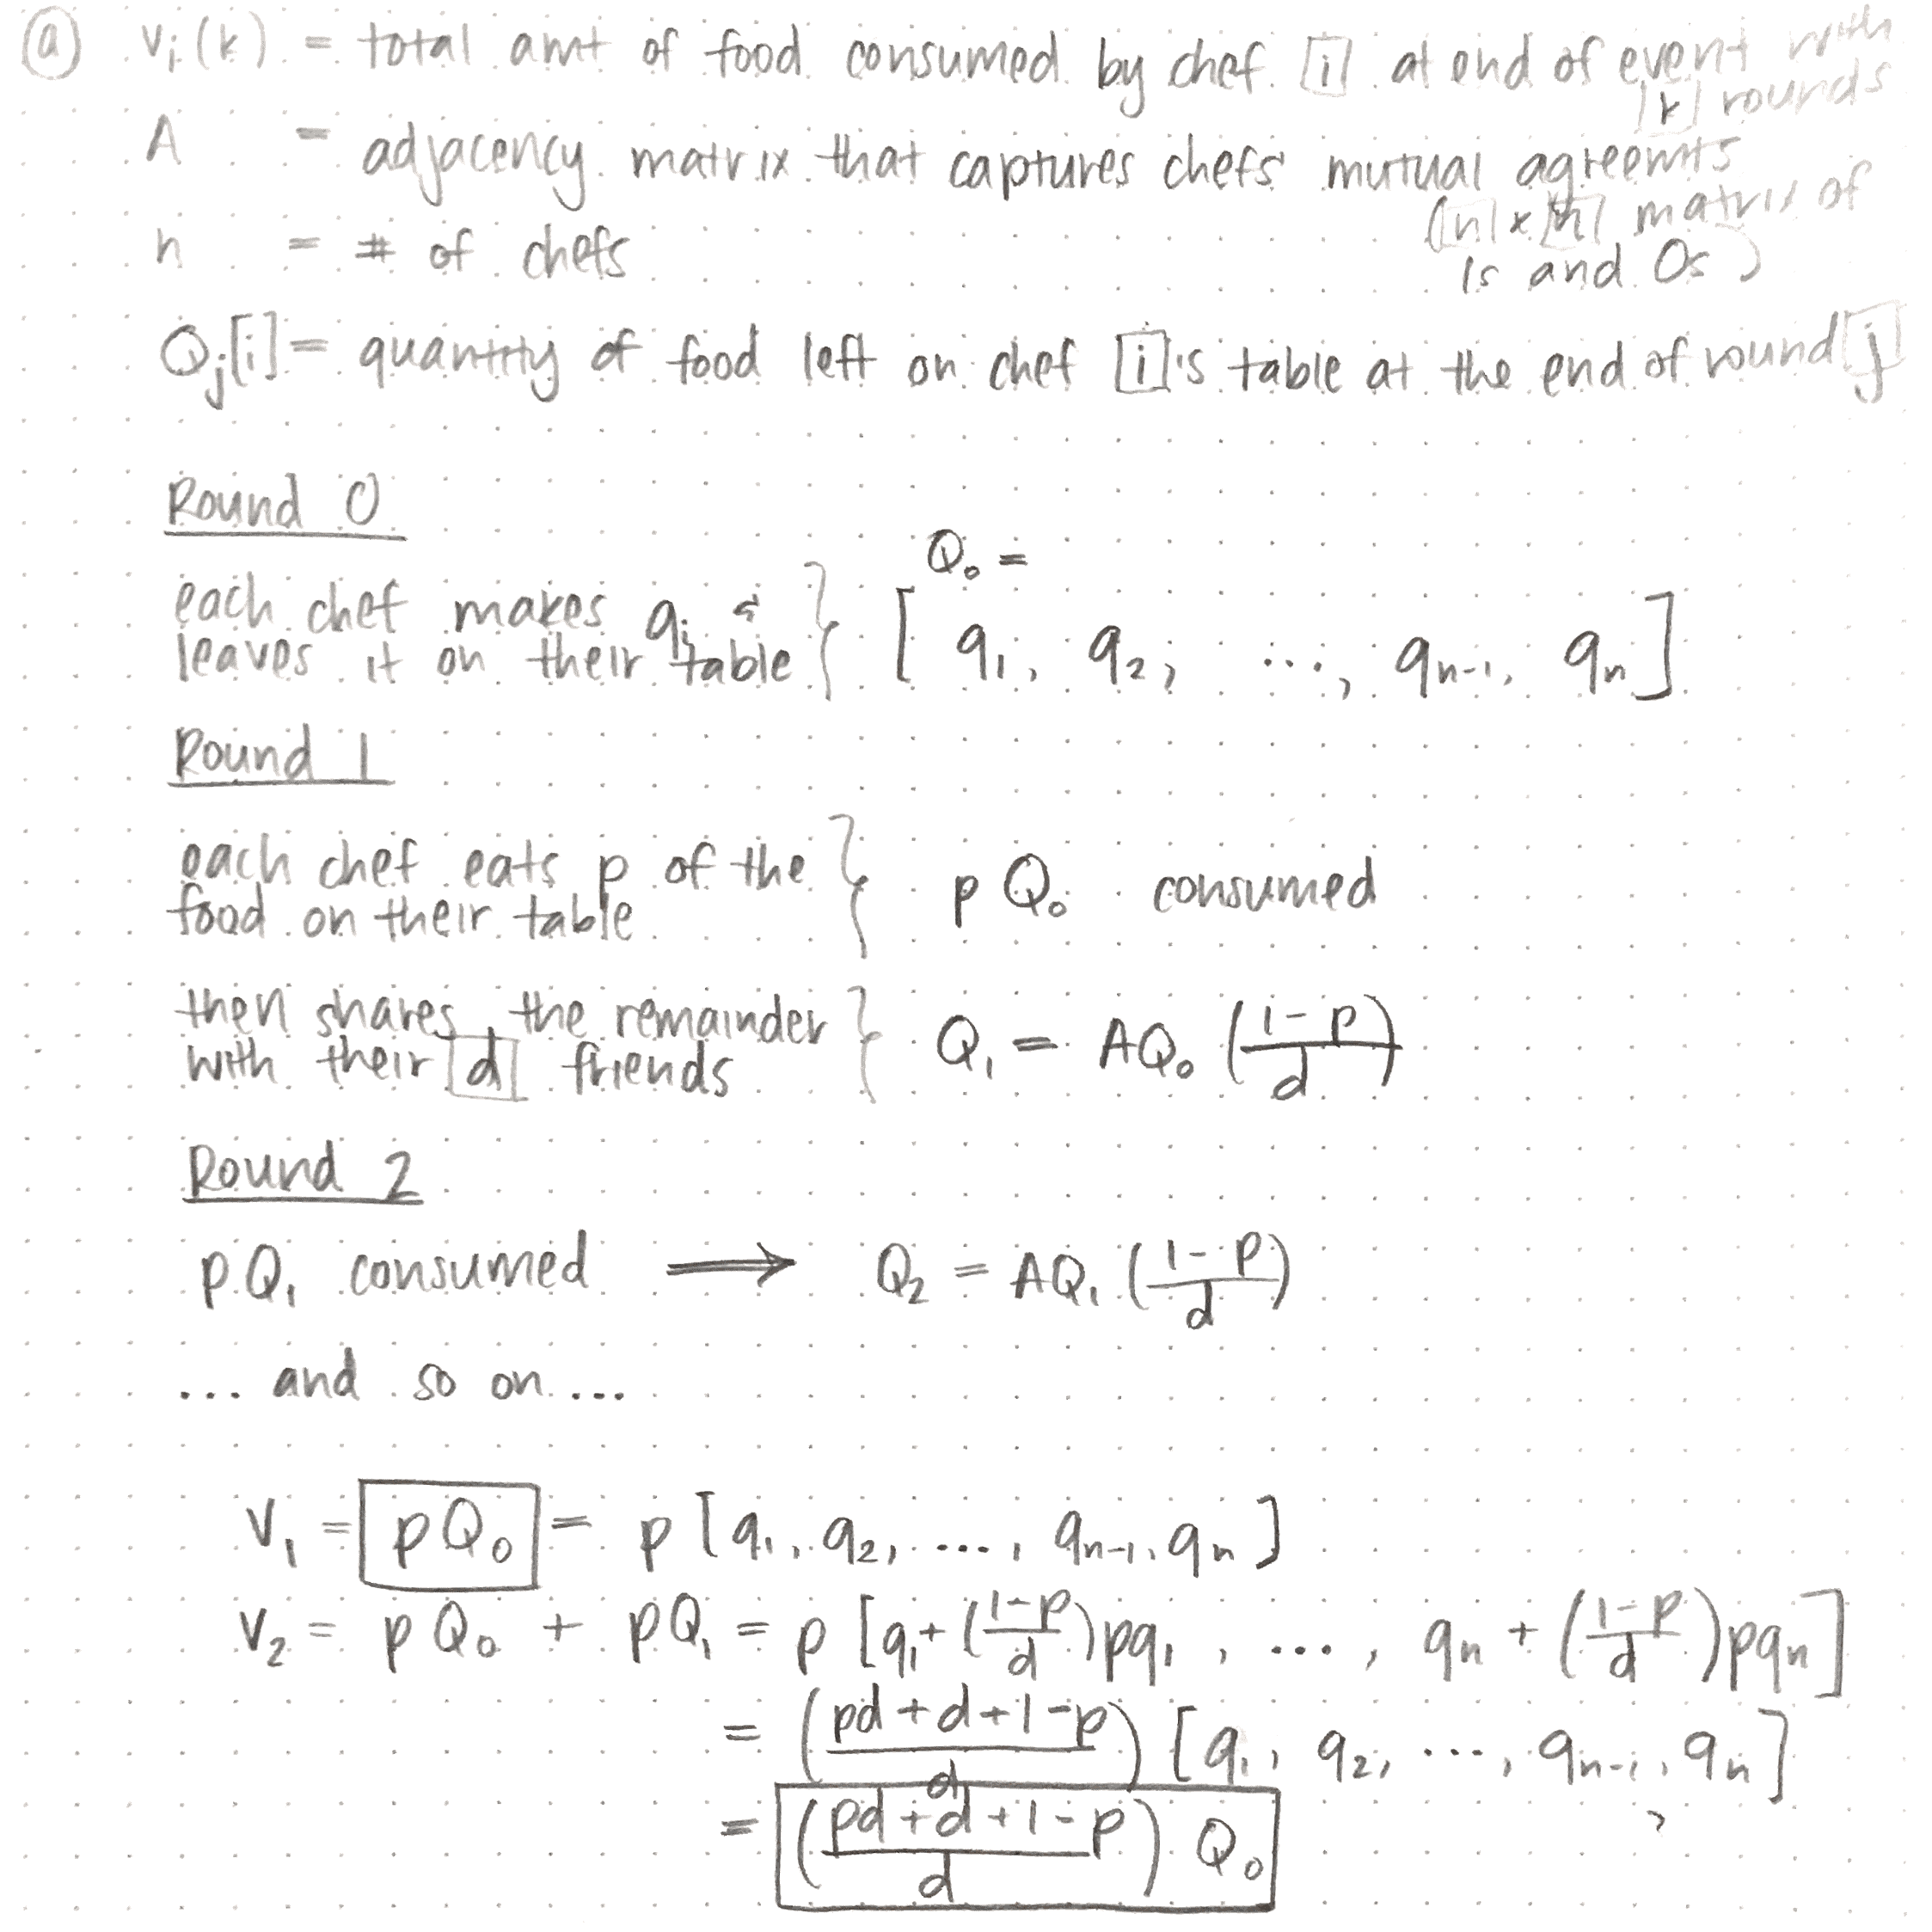 (a) vᵢ(k) = total amt of food consumed by chef [i] at end of event with [k] rounds
A = adjacency matrix that captures chefs' mutual agreemts
([n] x [n] matrix of 1s and 0s)
n = # of chefs
Qⱼ[i] = quantity of food left on chef [i]'s table at the end of round [j]
Round 0
each chef makes qᵢ & leaves it on their table } Q₀ = [q₁, q₂, ..., qₙ₋₁, qₙ]
Round 1
each chef eats p of the food on their table } p Q₀ consumed
then shares the remainder with their [d] friends } Q₁ = AQ₀ ((1-p)/d)
Round 2
pQ₁ consumed ⟹ Q₂ = AQ₁ ((1-p)/d)
... and so on ...
V₁ = pQ₀ = p [q₁, q₂, ..., qₙ₋₁, qₙ]
V₂ = pQ₀ + pQ₁ = p [q₁ + ((1-p)/d)pq₁, ..., qₙ + ((1-p)/d)pqₙ]
= ((pd+d+1-p)/d) [q₁, q₂, ..., qₙ₋₁, qₙ]
= ((pd+d+1-p)/d) Q₀